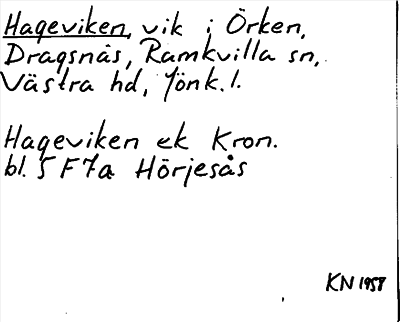 Hageviken, vik i Örken,
Dragsnäs, Ramkvilla sn,
Västra hd, Jönk. l.
Hageviken ek Kron.
bl. 5 F 7a Hörjesås
KN 1958